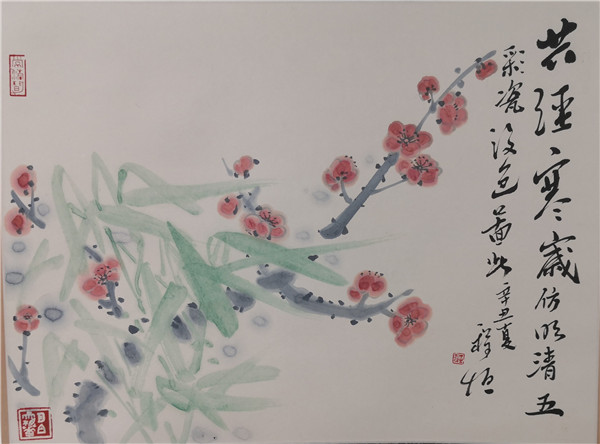 共经寒岁仿明清五
彩瓷设色画此辛丑夏
程恒